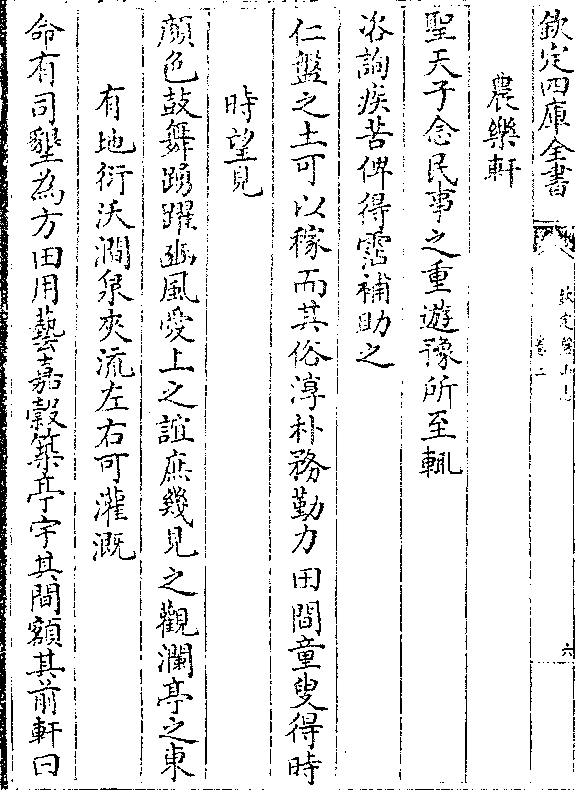 欽定四庫全書
欽定盤山志
卷二
六
農樂軒
聖天子念民事之重遊豫所至輒
咨詢疾苦俾得霑補助之
仁盤之土可以稼而其俗淳朴務勤力田間童叟得時
時望見
顏色鼓舞踴躍豳風愛上之誼庶幾見之觀瀾亭之東
有地衍沃澗泉夾流左右可灌溉
命有司墾為方田用藝嘉穀築亭宇其間額其前軒曰